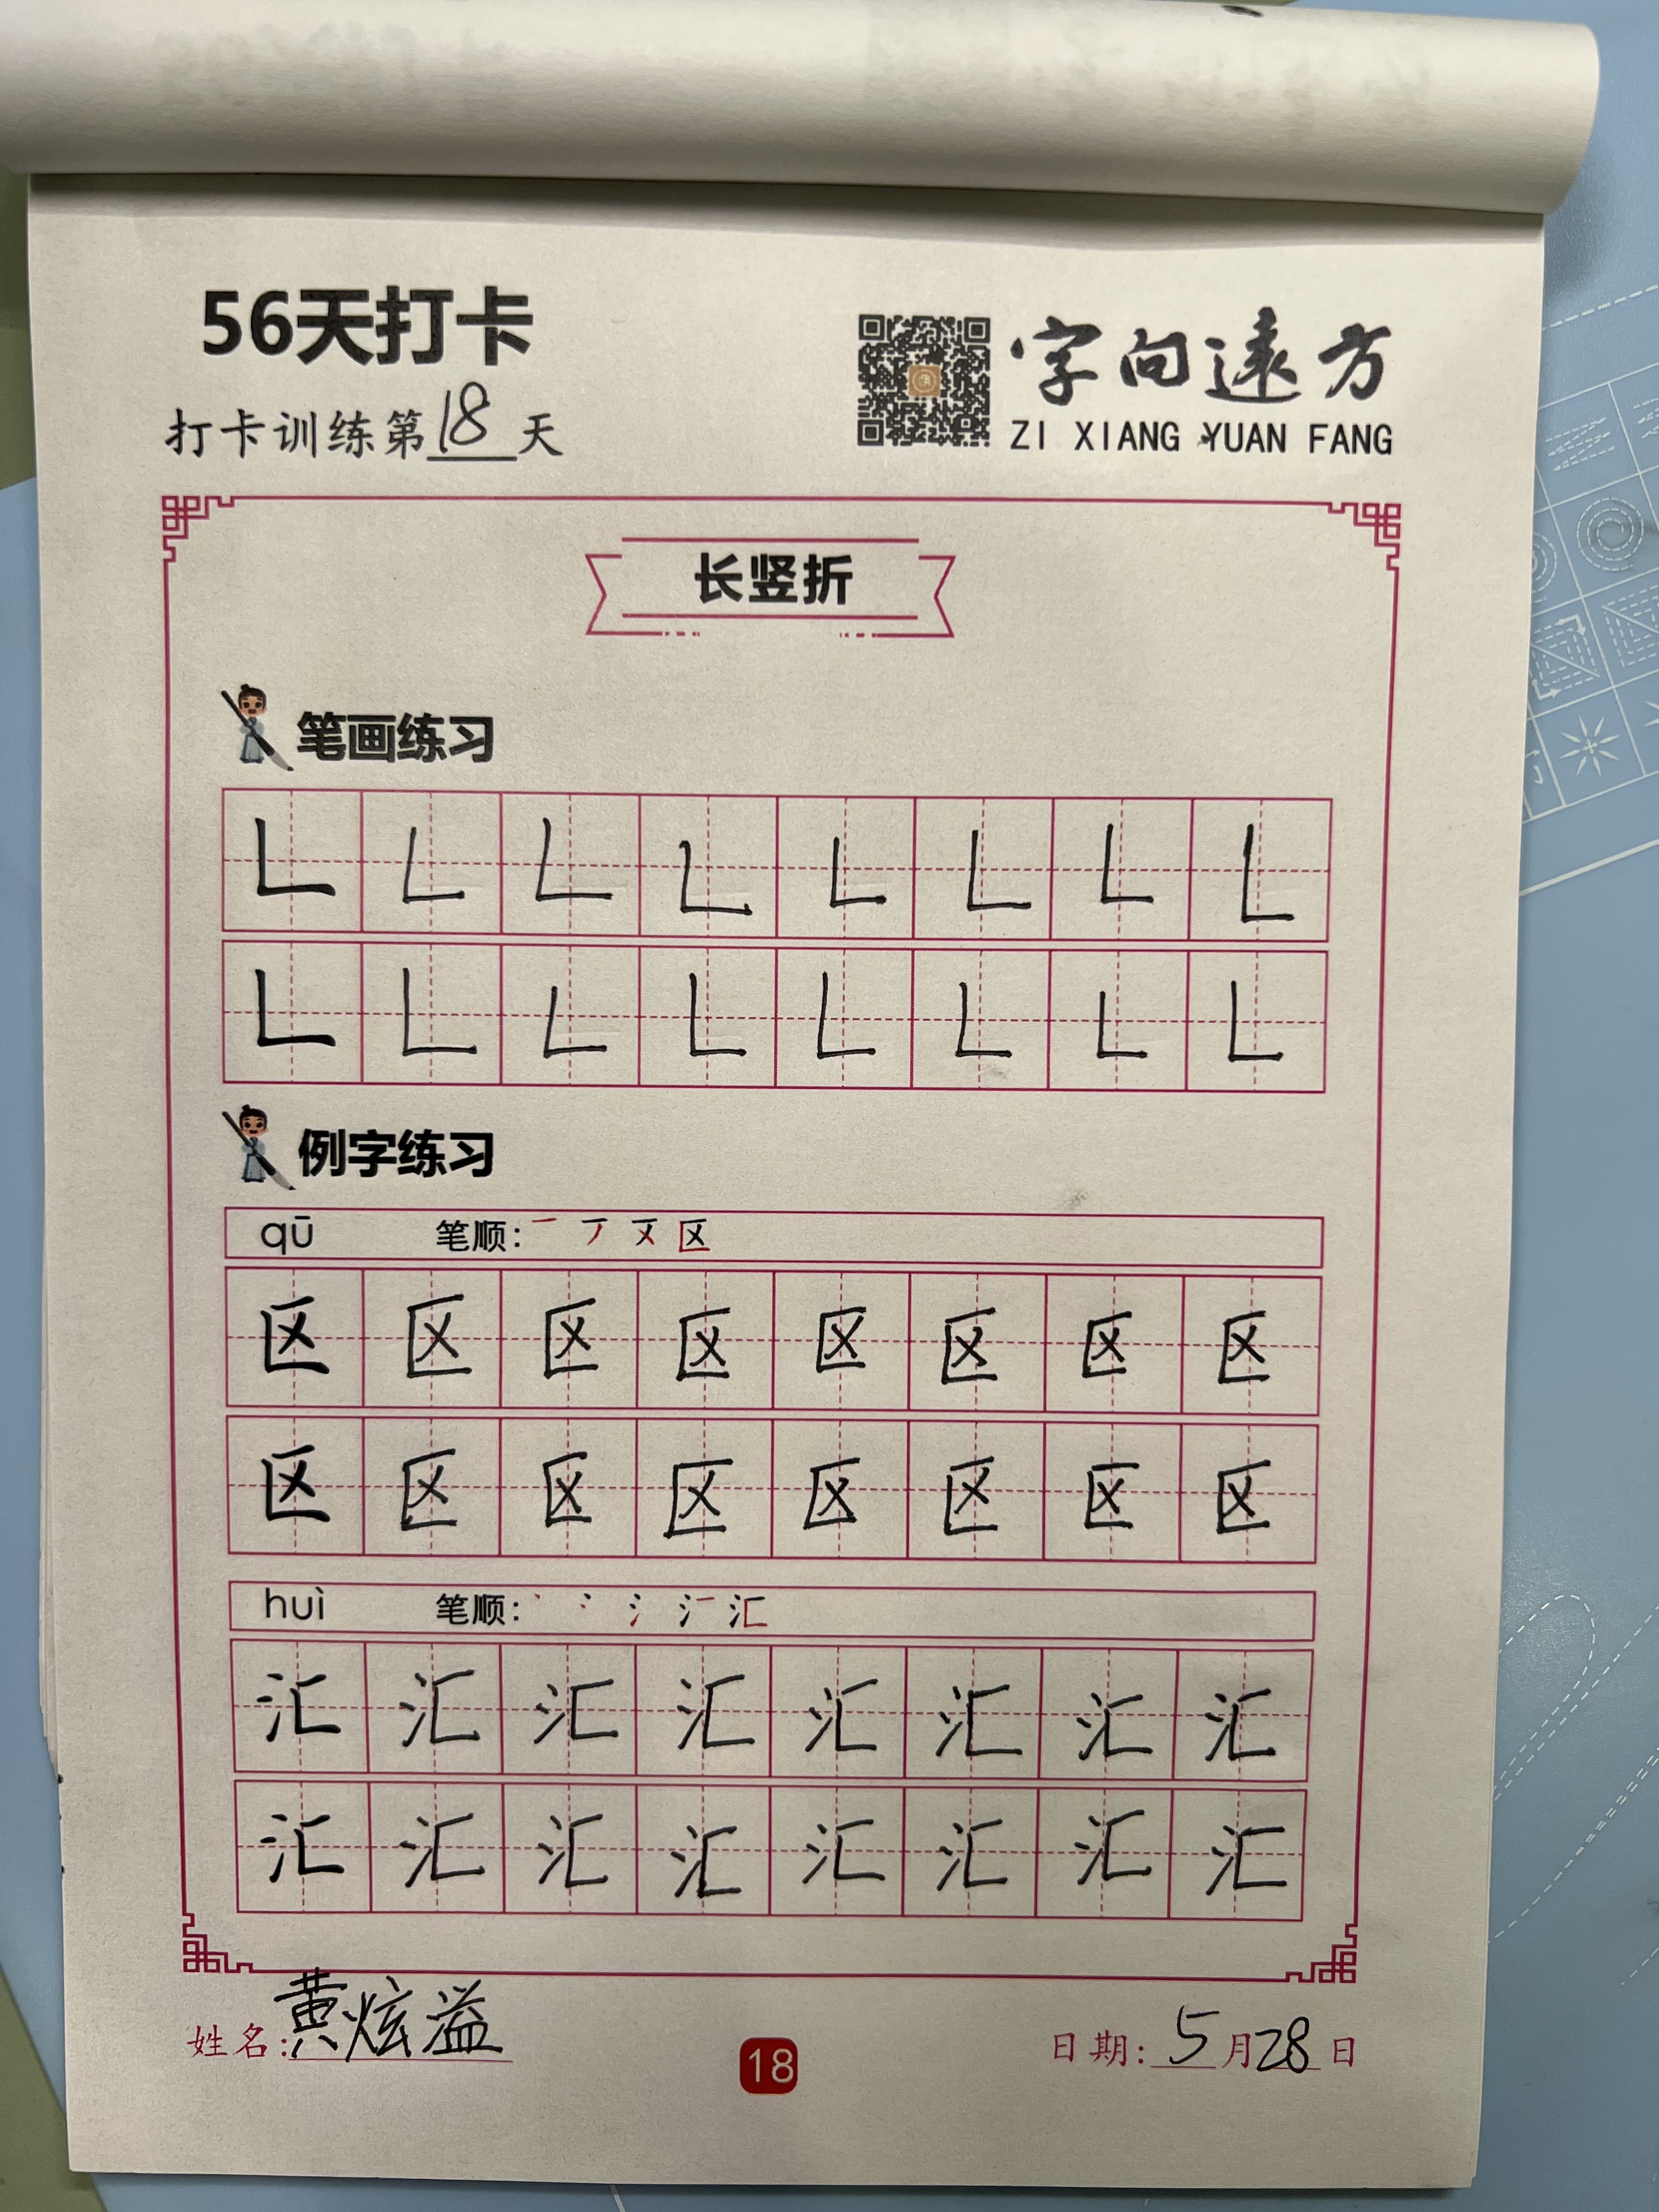 56天打卡
打卡训练第18天
字向遠方
ZI XIANG YUAN FANG
长竖折
笔画练习
𠃊 𠃊 𠃊 𠃊 𠃊 𠃊 𠃊 𠃊
𠃊 𠃊 𠃊 𠃊 𠃊 𠃊 𠃊 𠃊
例字练习
qū 笔顺: 一 丆 㐅 区
区 区 区 区 区 区 区 区
区 区 区 区 区 区 区 区
huì 笔顺: 丶 冫 氵 汇
汇 汇 汇 汇 汇 汇 汇 汇
汇 汇 汇 汇 汇 汇 汇 汇
姓名:黄炫溢
18
日期: 5月28日